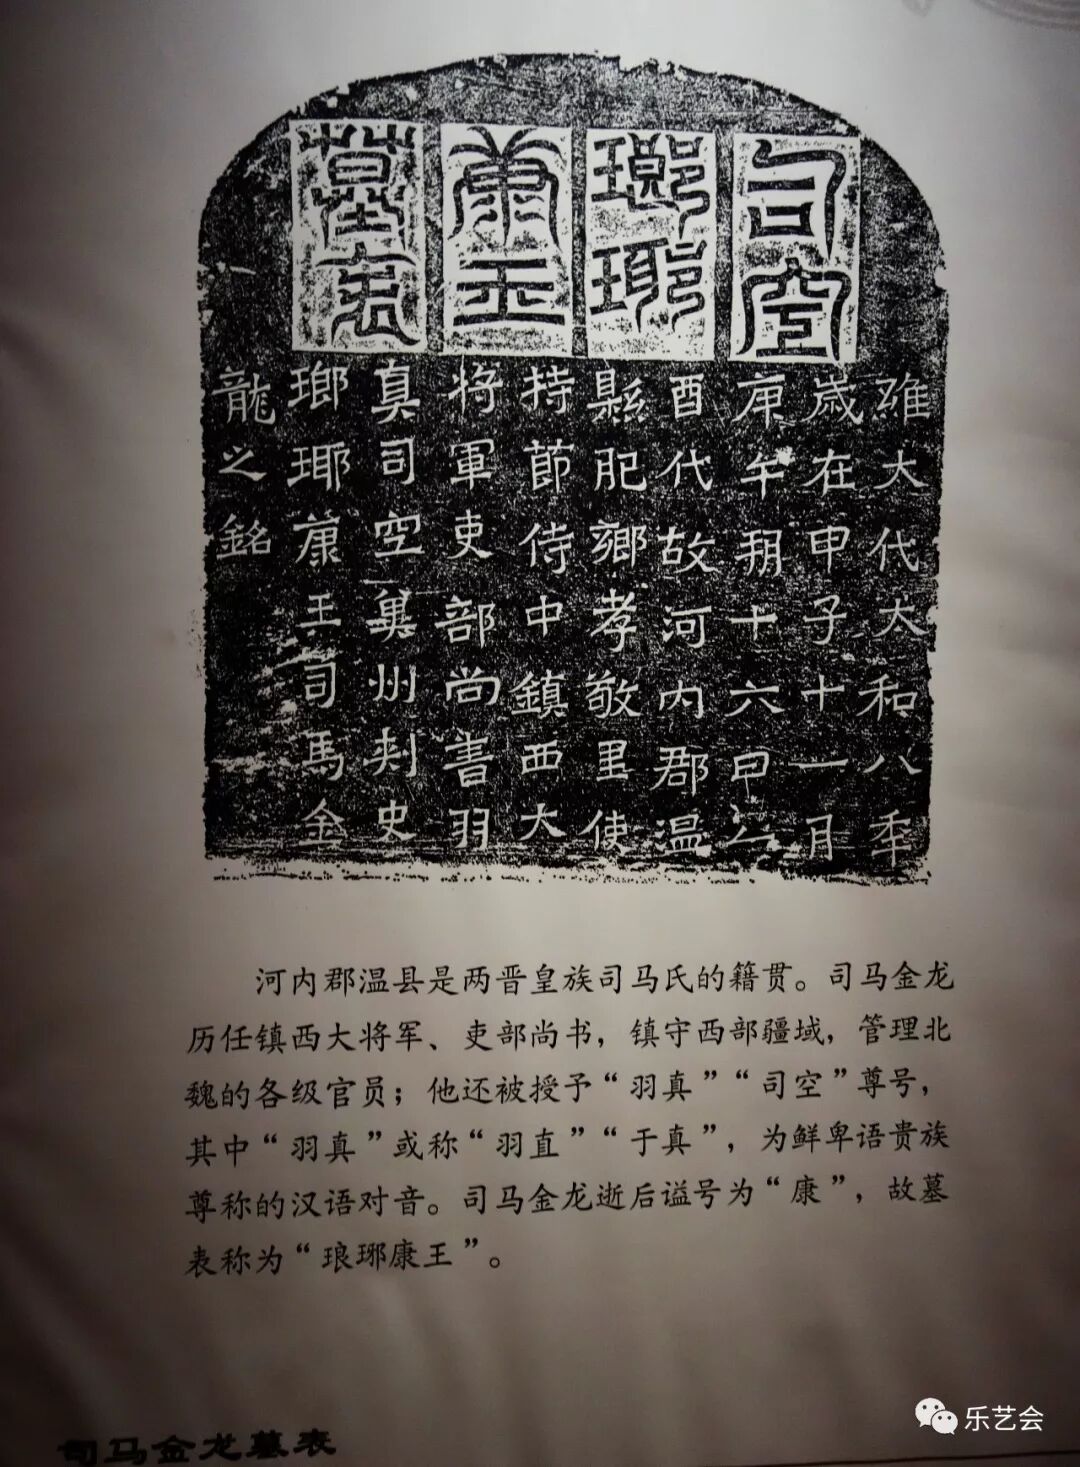 司空
瑯琊
康王
墓表
維大代太和八年
歲在甲子十一月
庚午朔十六日乙
酉代故河内郡温
縣肥鄉孝敬里使
持節侍中鎮西大
將軍吏部尚書羽
真司空冀州刺史
瑯琊康王司馬金
龍之銘
河内郡温县是两晋皇族司马氏的籍贯。司马金龙
历任镇西大将军、吏部尚书，镇守西部疆域，管理北
魏的各级官员；他还被授予“羽真”“司空”尊号，
其中“羽真”或称“羽直”“于真”，为鲜卑语贵族
尊称的汉语对音。司马金龙逝后谥号为“康”，故墓
表称为“琅琊康王”。
司马金龙墓表
乐艺会